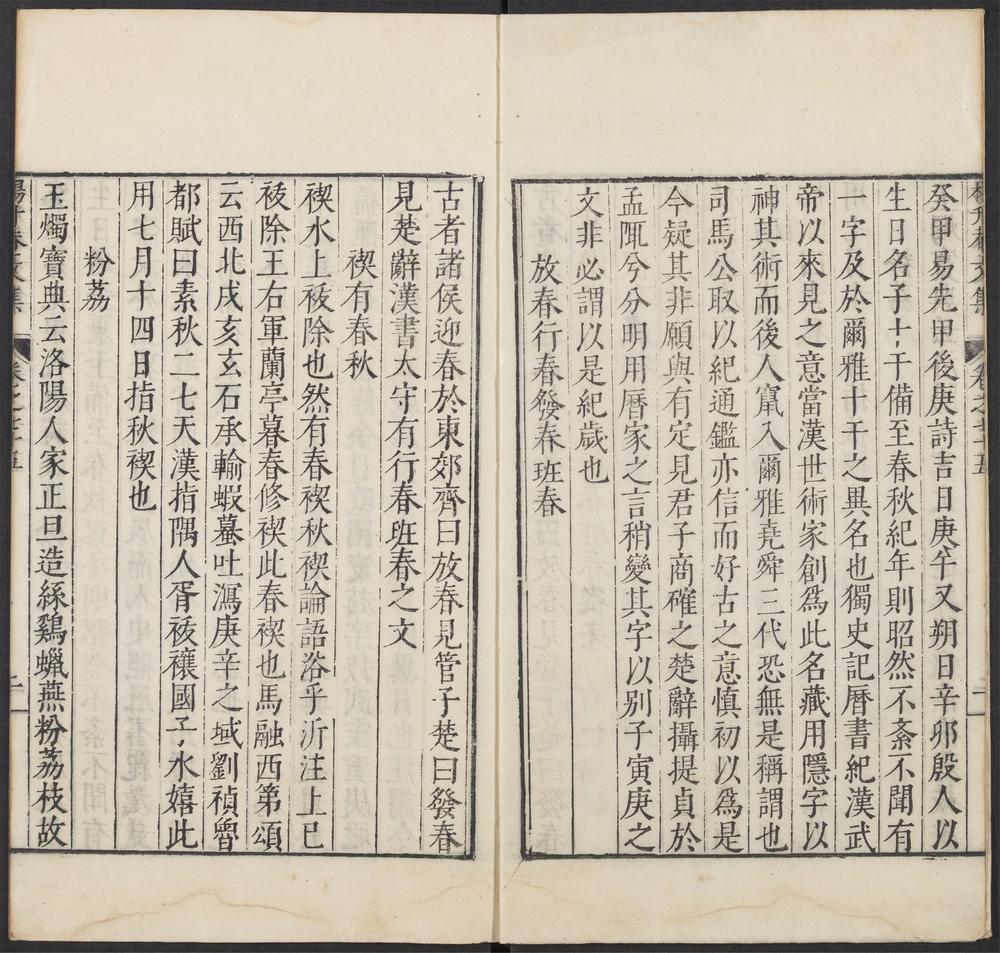 癸甲易先甲後庚詩吉日庚午又朔日辛卯殷人以
生日名子十干備至春秋紀年則昭然不紊不聞有
一字及於爾雅十干之異名也獨史記曆書紀漢武
帝以來見之意當漢世術家創爲此名藏用隱字以
神其術而後人竄入爾雅堯舜三代恐無是稱謂也
司馬公取以紀通鑑亦信而好古之意慎初以爲是
今疑其非願與有定見君子商確之楚辭攝提貞於
孟陬兮分明用曆家之言稍變其字以別子寅庚之
文非必謂以是紀歲也
放春行春發春班春
古者諸侯迎春於東郊齊曰放春見管子楚曰發春
見楚辭漢書太守有行春班春之文
禊有春秋
禊水上祓除也然有春禊秋禊論語浴乎沂注上巳
祓除王右軍蘭亭暮春修禊此春禊也馬融西第頌
云西北戌亥玄石承輸蝦蟇吐瀉庚辛之域劉禎魯
都賦曰素秋二七天漢指隅人胥祓禳國子水嬉此
用七月十四日指秋禊也
粉荔
玉燭寶典云洛陽人家正旦造絲鷄蠟燕粉荔枝故